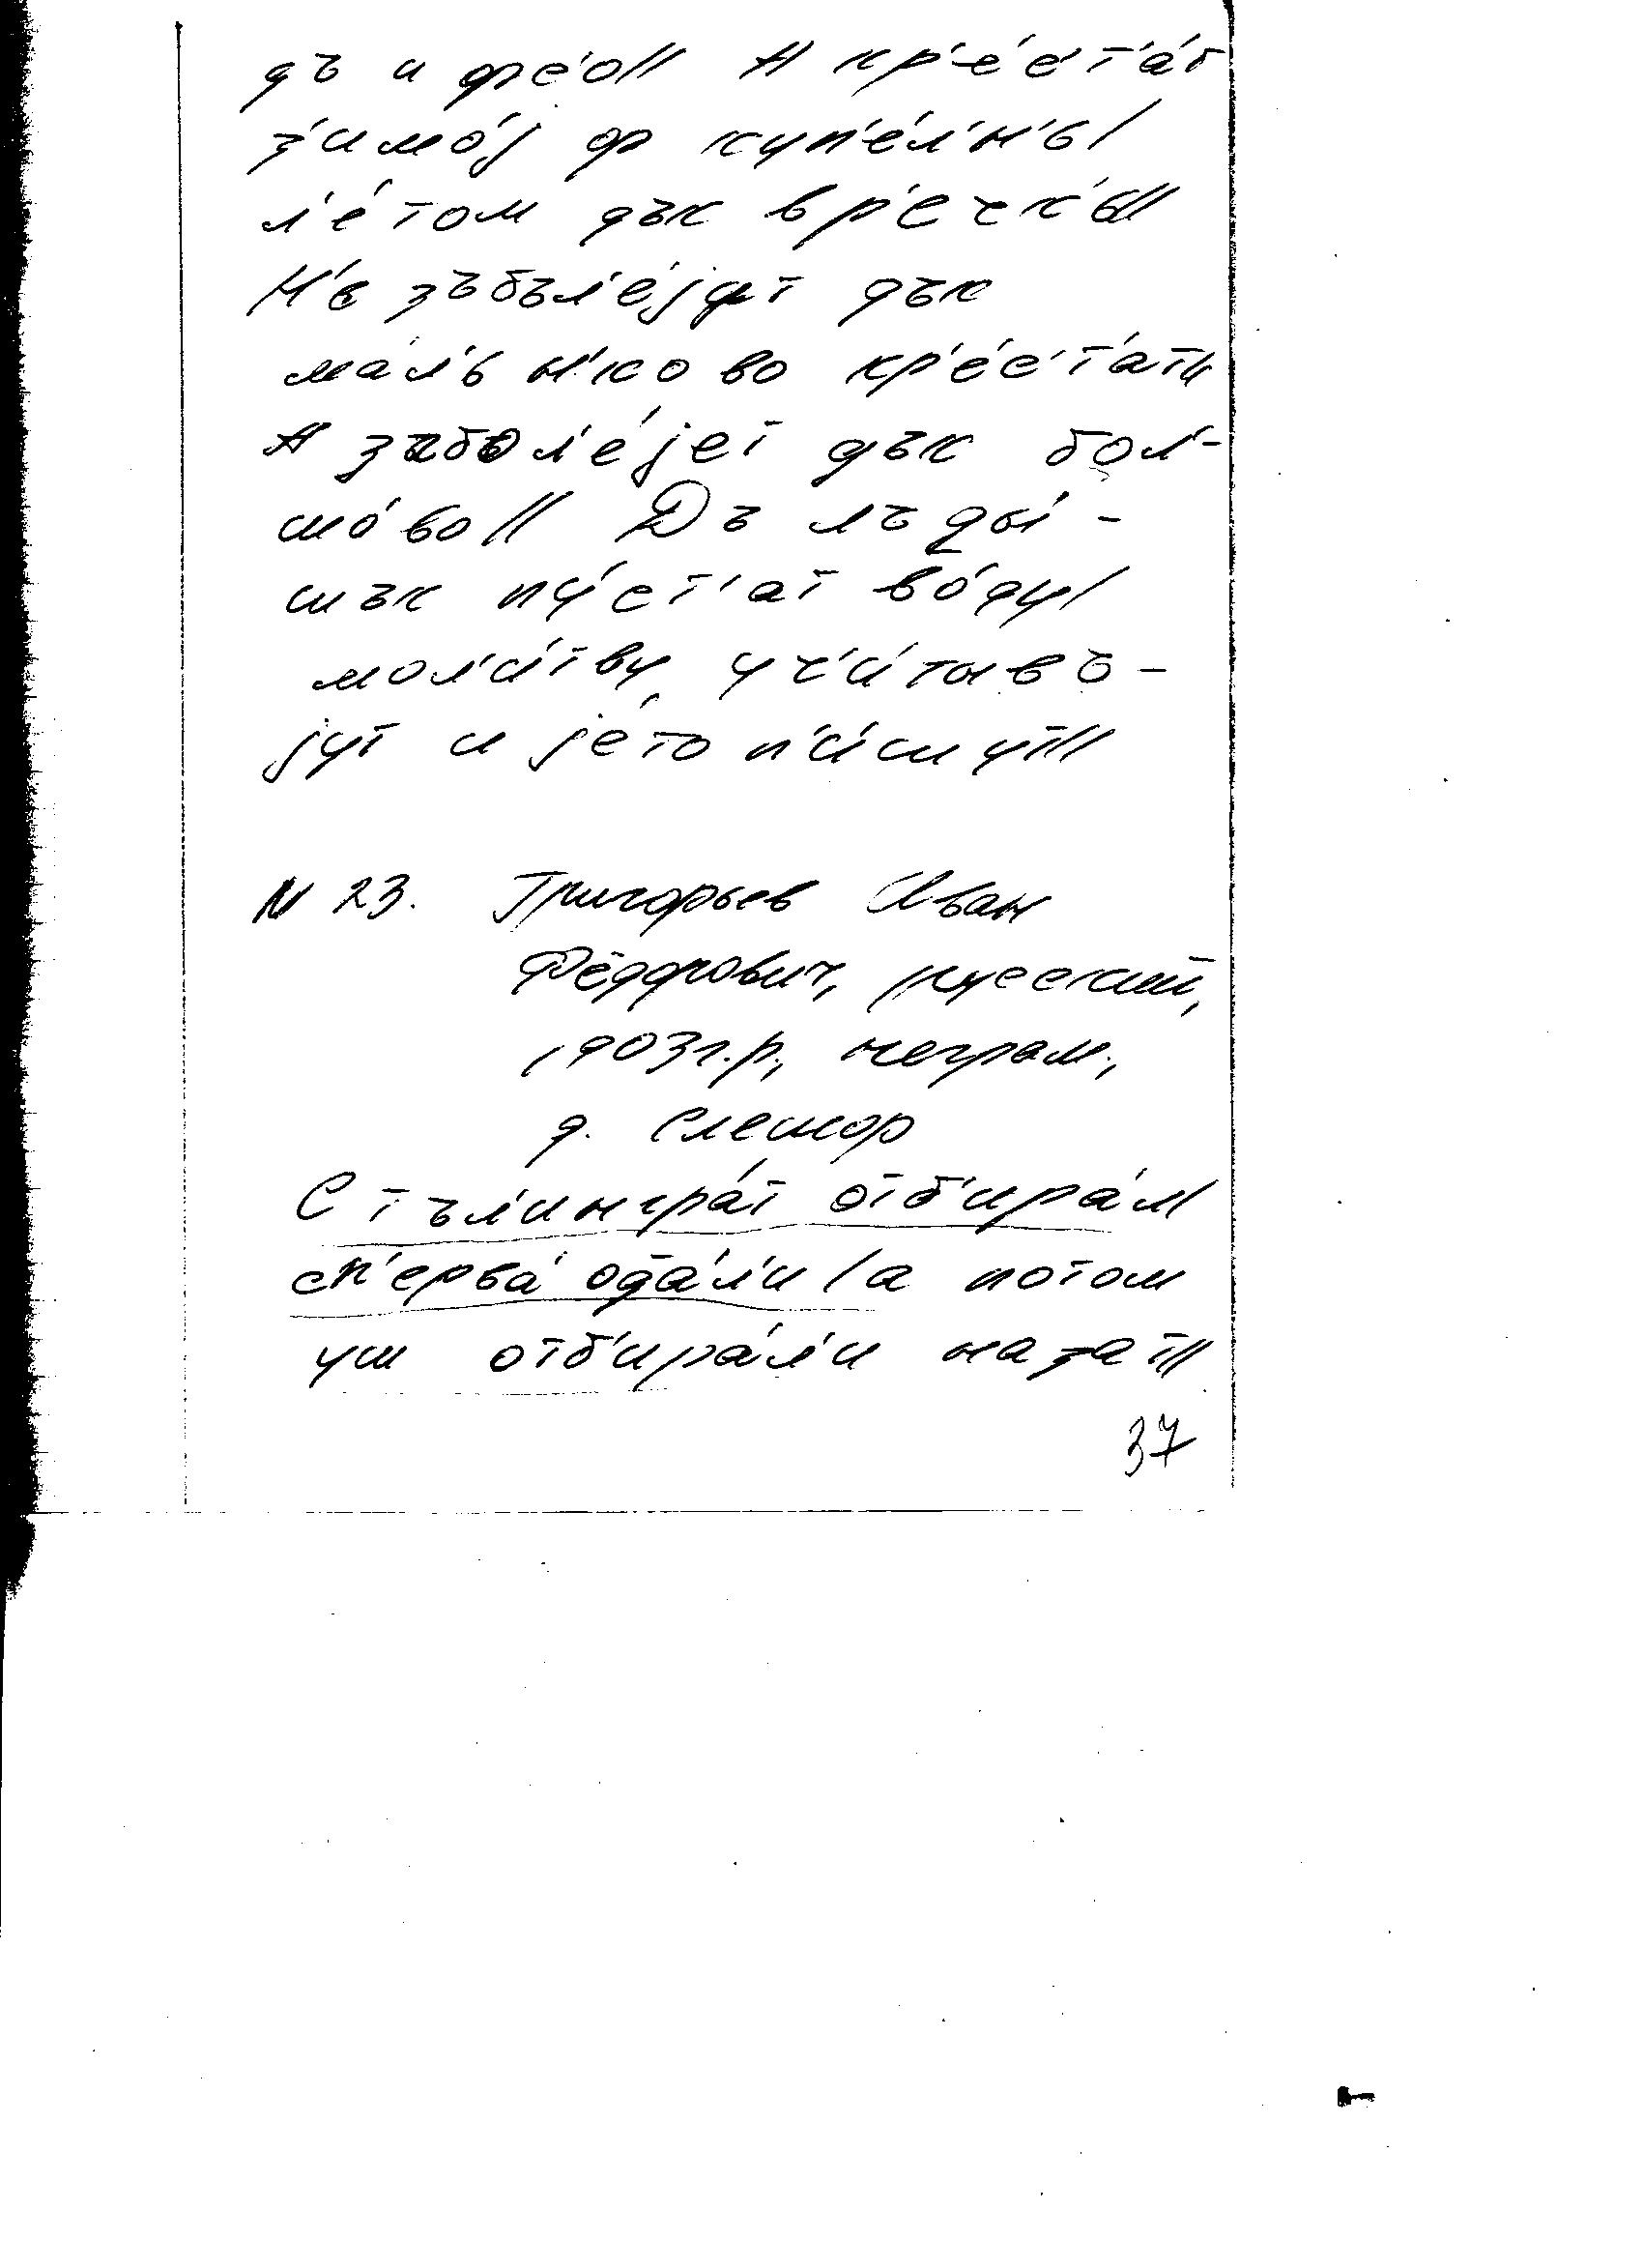 дъ и фс'о// А кр'ес'т'а́т
з'имо́j ф купе́л'н'ь/
л'е́том дък в р'ечк'ь//
Н'ь зъбъл'е́jут дък
мал'ьн'ково кр'ес'т'ат//
А забол'е́jет дък бол'-
шо́во// Дъ лъды́-
шък пу́с'т'ат в во́ду/
мол'и́тву уч'и́тывъ-
jут и jе́то п'и́шут//
N 23. Григорьев Иван
Фёдорович, русский,
1903 г.р., неграм.,
д. Слешор
Стъл'ингра́т отб'ира́л'/
сп'ерва́ отда́л'и / а потом
уш отб'ира́л'и наза́т//
37